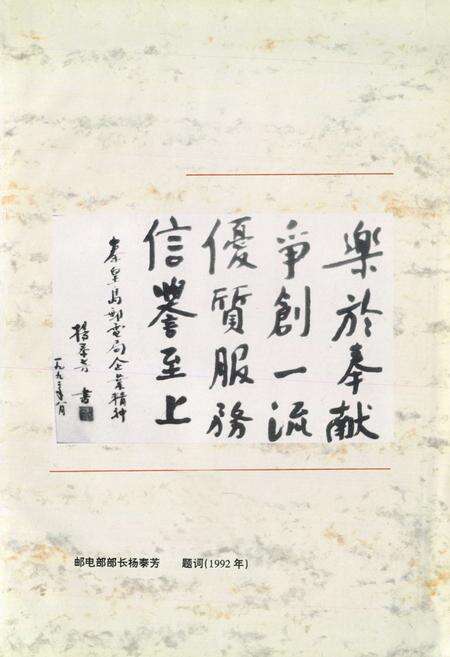 樂於奉献
爭創一流
優質服務
信譽至上
秦皇島邮電局企業精神
楊泰芳 書
一九九二年一月
邮电部部长杨泰芳 题词(1992年)